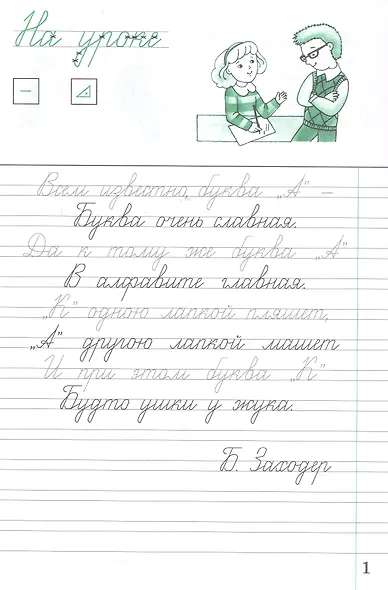 На уроке
Всем известно, буква „А” –
Буква очень славная.
Да к тому же буква „А”
В алфавите главная.
„К” одною лапкой пляшет,
„А” другою лапкой машет
И при этом буква „К”
Будто ушки у жука.
Б. Заходер
1